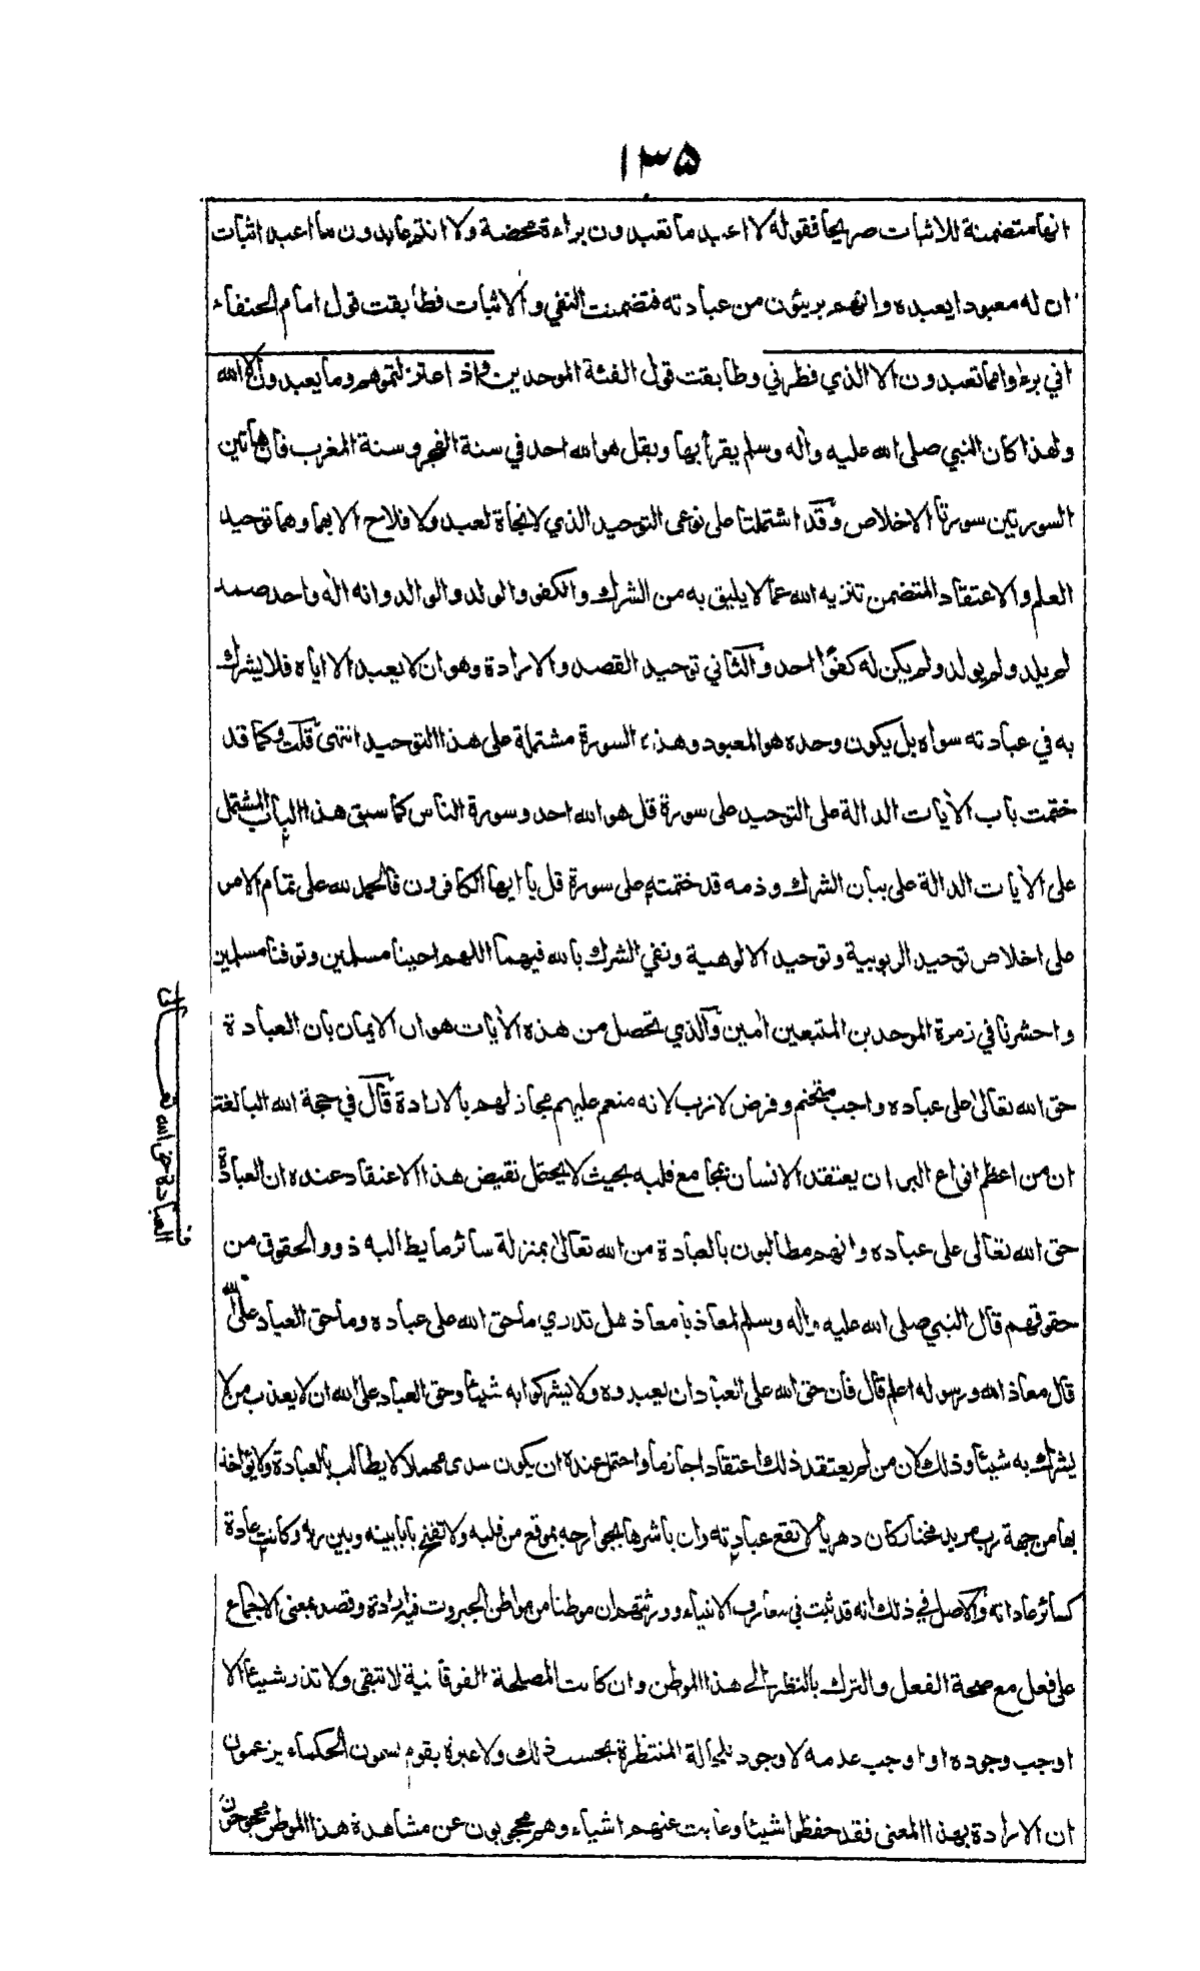 ١٣٥
انها متضمنة للاثبات صريحا فقوله لا اعبد ما تعبدون براءة محضة ولا انتم عابدون ما اعبد اثبات
ان له معبودا يعبده وانهم بريئون من عبادته فتضمنت النفي والاثبات فطابقت قول امام الحنفاء
اني براء مما تعبدون الا الذي فطرني وطابقت قول الفئة الموحدين واذ اعتزلتموهم وما يعبدون الا الله
ولهذا كان النبي صلى الله عليه وآله وسلم يقرأ بها وبقل هو الله احد في سنة الفجر وسنة المغرب فان هاتين
السورتين سورتا الاخلاص وقد اشتملتا على نوعى التوحيد الذي لا نجاة لعبد ولا فلاح الا بهما وهما توحيد
العلم والاعتقاد المتضمن تنزيه الله عما لا يليق به من الشرك والكفو والولد والوالد وانه اله واحد صمد
لم يلد ولم يولد ولم يكن له كفوًا احد والثاني توحيد القصد والارادة وهو ان لا يعبد الا اياه فلا يشرك
به في عبادته سواه بل يكون وحده هو المعبود وهذه السورة مشتملة على هذا التوحيد انتهى قلت وكما قد
ختمت باب الآيات الدالة على التوحيد على سورة قل هو الله احد وسورة الناس كما سبق هذا الباب المشتمل
على الآيات الدالة على بيان الشرك وذمه قد ختمته على سورة قل يا ايها الكافرون فالحمد لله على تمام الامر
على اخلاص توحيد الربوبية وتوحيد الالوهية ونفي الشرك بالله فيهما اللهم احينا مسلمين وتوفنا مسلمين
واحشرنا في زمرة الموحدين المتبعين آمين والذي تحصل من هذه الآيات هو ان الايمان بان العبادة
حق الله تعالى على عباده واجب متحتم وفرض لازب لانه منعم عليهم مجاز لهم بالارادة قال في حجة الله البالغة
ان من اعظم انواع البر ان يعتقد الانسان بمجامع قلبه بحيث لا يحتمل نقيض هذا الاعتقاد عنده ان العبادة
حق الله تعالى على عباده وانهم مطالبون بالعبادة من الله تعالى بمنزلة سائر ما يطالبه ذوو الحقوق من
حقوقهم قال النبي صلى الله عليه وآله وسلم لمعاذ يا معاذ هل تدري ما حق الله على عباده وما حق العباد على الله
قال معاذ الله ورسوله اعلم قال فان حق الله على العباد ان يعبدوه ولا يشركوا به شيئا وحق العباد على الله ان لا يعذب من لا
يشرك به شيئا وذلك لان من لم يعتقد ذلك اعتقادا جازما واحتمل عنده ان يكون سدى مهملا لا يطالب بالعبادة ولا يؤاخذ
بها من جهة رب مريد مختار كان دهريا لا تقع عبادته وان باشرها بجوارحه بموقع من قلبه ولا تفتح بابا بينه وبين ربه وكانت عادة
كسائر عاداته والاصل في ذلك انه قد ثبت في معارف الانبياء وورثتهم ان موطنا من مواطن الجبروت فيه ارادة وقصد بمعنى الاجماع
على فعل مع صحة الفعل والترك بالنظر الى هذا الموطن وان كانت المصلحة الفوقانية لا تبقى ولا تذر شيئا الا
اوجب وجوده او اوجب عدمه لا وجود للحالة المنتظرة بحسب ذلك ولا عبرة بقوم يسمون الحكماء يزعمون
ان الارادة بهذا المعنى فقد حفظوا شيئا وغابت عنهم اشياء وهم محجوبون عن مشاهدة هذا الموطن محجوجون
ف العبادة حق الله تعالى